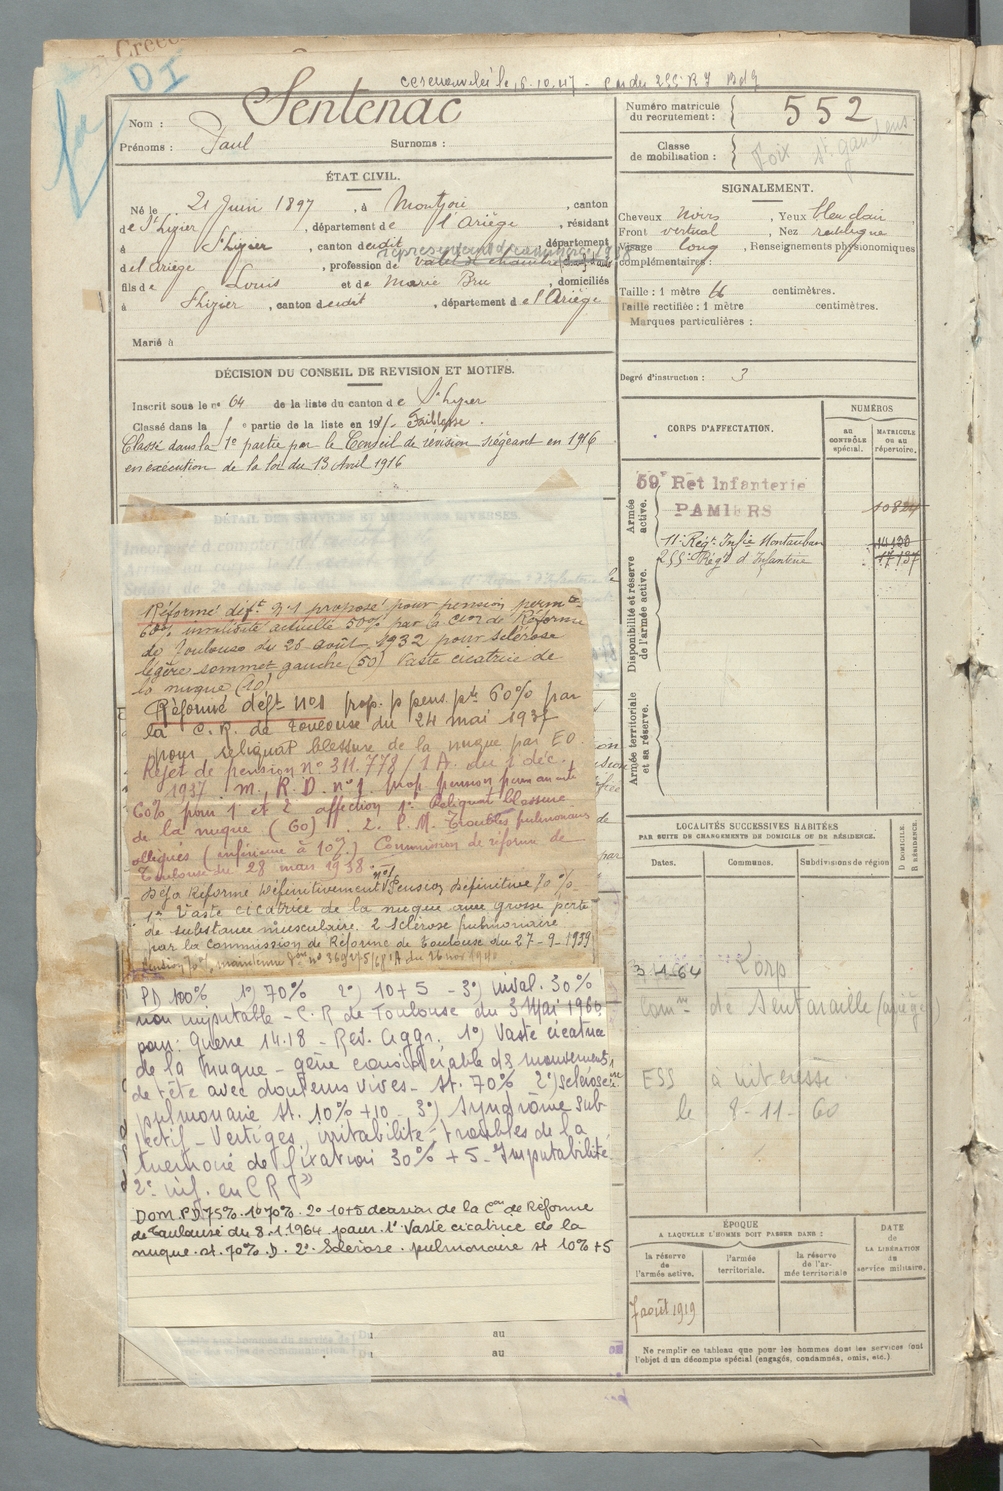 DI
Nom : Sentenac
Prénoms : Paul Surnoms :
Numéro matricule du recrutement : 552
Classe de mobilisation : Foix St gaudens
ÉTAT CIVIL.
Né le 21 Juin 1897, à Montjoie, canton
de St Lizier, département de l'Ariège, résidant
à St Lizier, canton dudit département
d el'Ariège, profession de valet de chambre
fils de Louis et de Marie Bru, domiciliés
à St Lizier, canton dudit, département d e l'Ariège
Marié à
SIGNALEMENT.
Cheveux noirs, Yeux bleu clair
Front vertical, Nez rectiligne
Visage long, Renseignements physionomiques
complémentaires :
Taille : 1 mètre 66 centimètres.
Taille rectifiée : 1 mètre centimètres.
Marques particulières :
Degré d'instruction : 3
DÉCISION DU CONSEIL DE REVISION ET MOTIFS.
Inscrit sous le no 64 de la liste du canton de St Lizier
Classé dans la partie de la liste en 191 Faiblesse.
Classé dans la 1e partie par le Conseil de révision siégeant en 1916
en exécution de la loi du 13 Avril 1916
CORPS D'AFFECTATION.
NUMÉROS
AU CONTRÔLE spécial.
MATRICULE OU AU répertoire.
Armée active.
59 Ret Infanterie
PAMIERS
11e Régt Infie Montauban 14120
255e Régt d'Infanterie 17137
Disponibilité et réserve de l'armée active.
Armée territoriale et sa réserve.
DÉTAIL DES SERVICES ET MUTATIONS DIVERSES.
Réformé déft n°1 proposé pour pension permte
60% invalidité actuelle 50% par la Con de Réforme
de Toulouse du 26 août 1932 pour sclérose
légère sommet gauche (50) Vaste cicatrice de
la nuque (10)
Réformé déft n°1 prop. p pens. pte 60% par
la C.R. de Toulouse du 24 mai 1937
pour reliquat blessure de la nuque par EO.
Rejet de pension n° 311.778/1A. du 2 déc.
1937. m. R. D. n°1 prop. pension permanente
60% pour 1e et 2e affection 1° Reliquat blessure
de la nuque (60) 2. P.M. Troubles pulmonaires
allégués (inférieure à 10%) Commission de réforme de
Toulouse du 28 mars 1938
Déjà Réformé Définitivement n°1 Pension définitive 70%
1° Vaste cicatrice de la nuque avec grosse perte
de substance musculaire. 2 Sclérose pulmonaire
par la Commission de Réforme de Toulouse du 27-9-1939
PD 100% 1°) 70% 2°) 10+5 - 3°) inval. 30%
non imputable - C.R de Toulouse du 3 Mai 1960
pour : Guerre 14.18 - Rev. Aggr. 1°) Vaste cicatrice
de la nuque - gêne considérable ds mouvements
de tête avec douleurs vives - st. 70% 2°) sclérose
pulmonaire st. 10% +10 - 3°) Syndrôme sub
jectif - Vertiges, irritabilité - troubles de la
mémoire de fixation 30% +5 - Imputabilité
Dom. P.D. 75%. 1° 70%. 2° 10+5 décision de la Con de Réforme
de Toulouse du 8.1.1964 pour 1° Vaste cicatrice de la
nuque st. 70% .D. 2° Sclérose pulmonaire st 10% +5
LOCALITÉS SUCCESSIVES HABITÉES
PAR SUITE DE CHANGEMENTS DE DOMICILE OU DE RÉSIDENCE.
Dates. Communes. Subdivisions de région
D DOMICILE. R RÉSIDENCE.
3-1-64 Lorp
Comne de Sentaraille (ariège)
ESS
le 8-11-60
ÉPOQUE
A LAQUELLE L'HOMME DOIT PASSER DANS :
la réserve de l'armée active.
l'armée territoriale.
la réserve de l'armée territoriale
DATE de LA LIBÉRATION du service militaire.
7 août 1919
au
au
Ne remplir ce tableau que pour les hommes dont les services font
l'objet d'un décompte spécial (engagés, condamnés, omis, etc.)